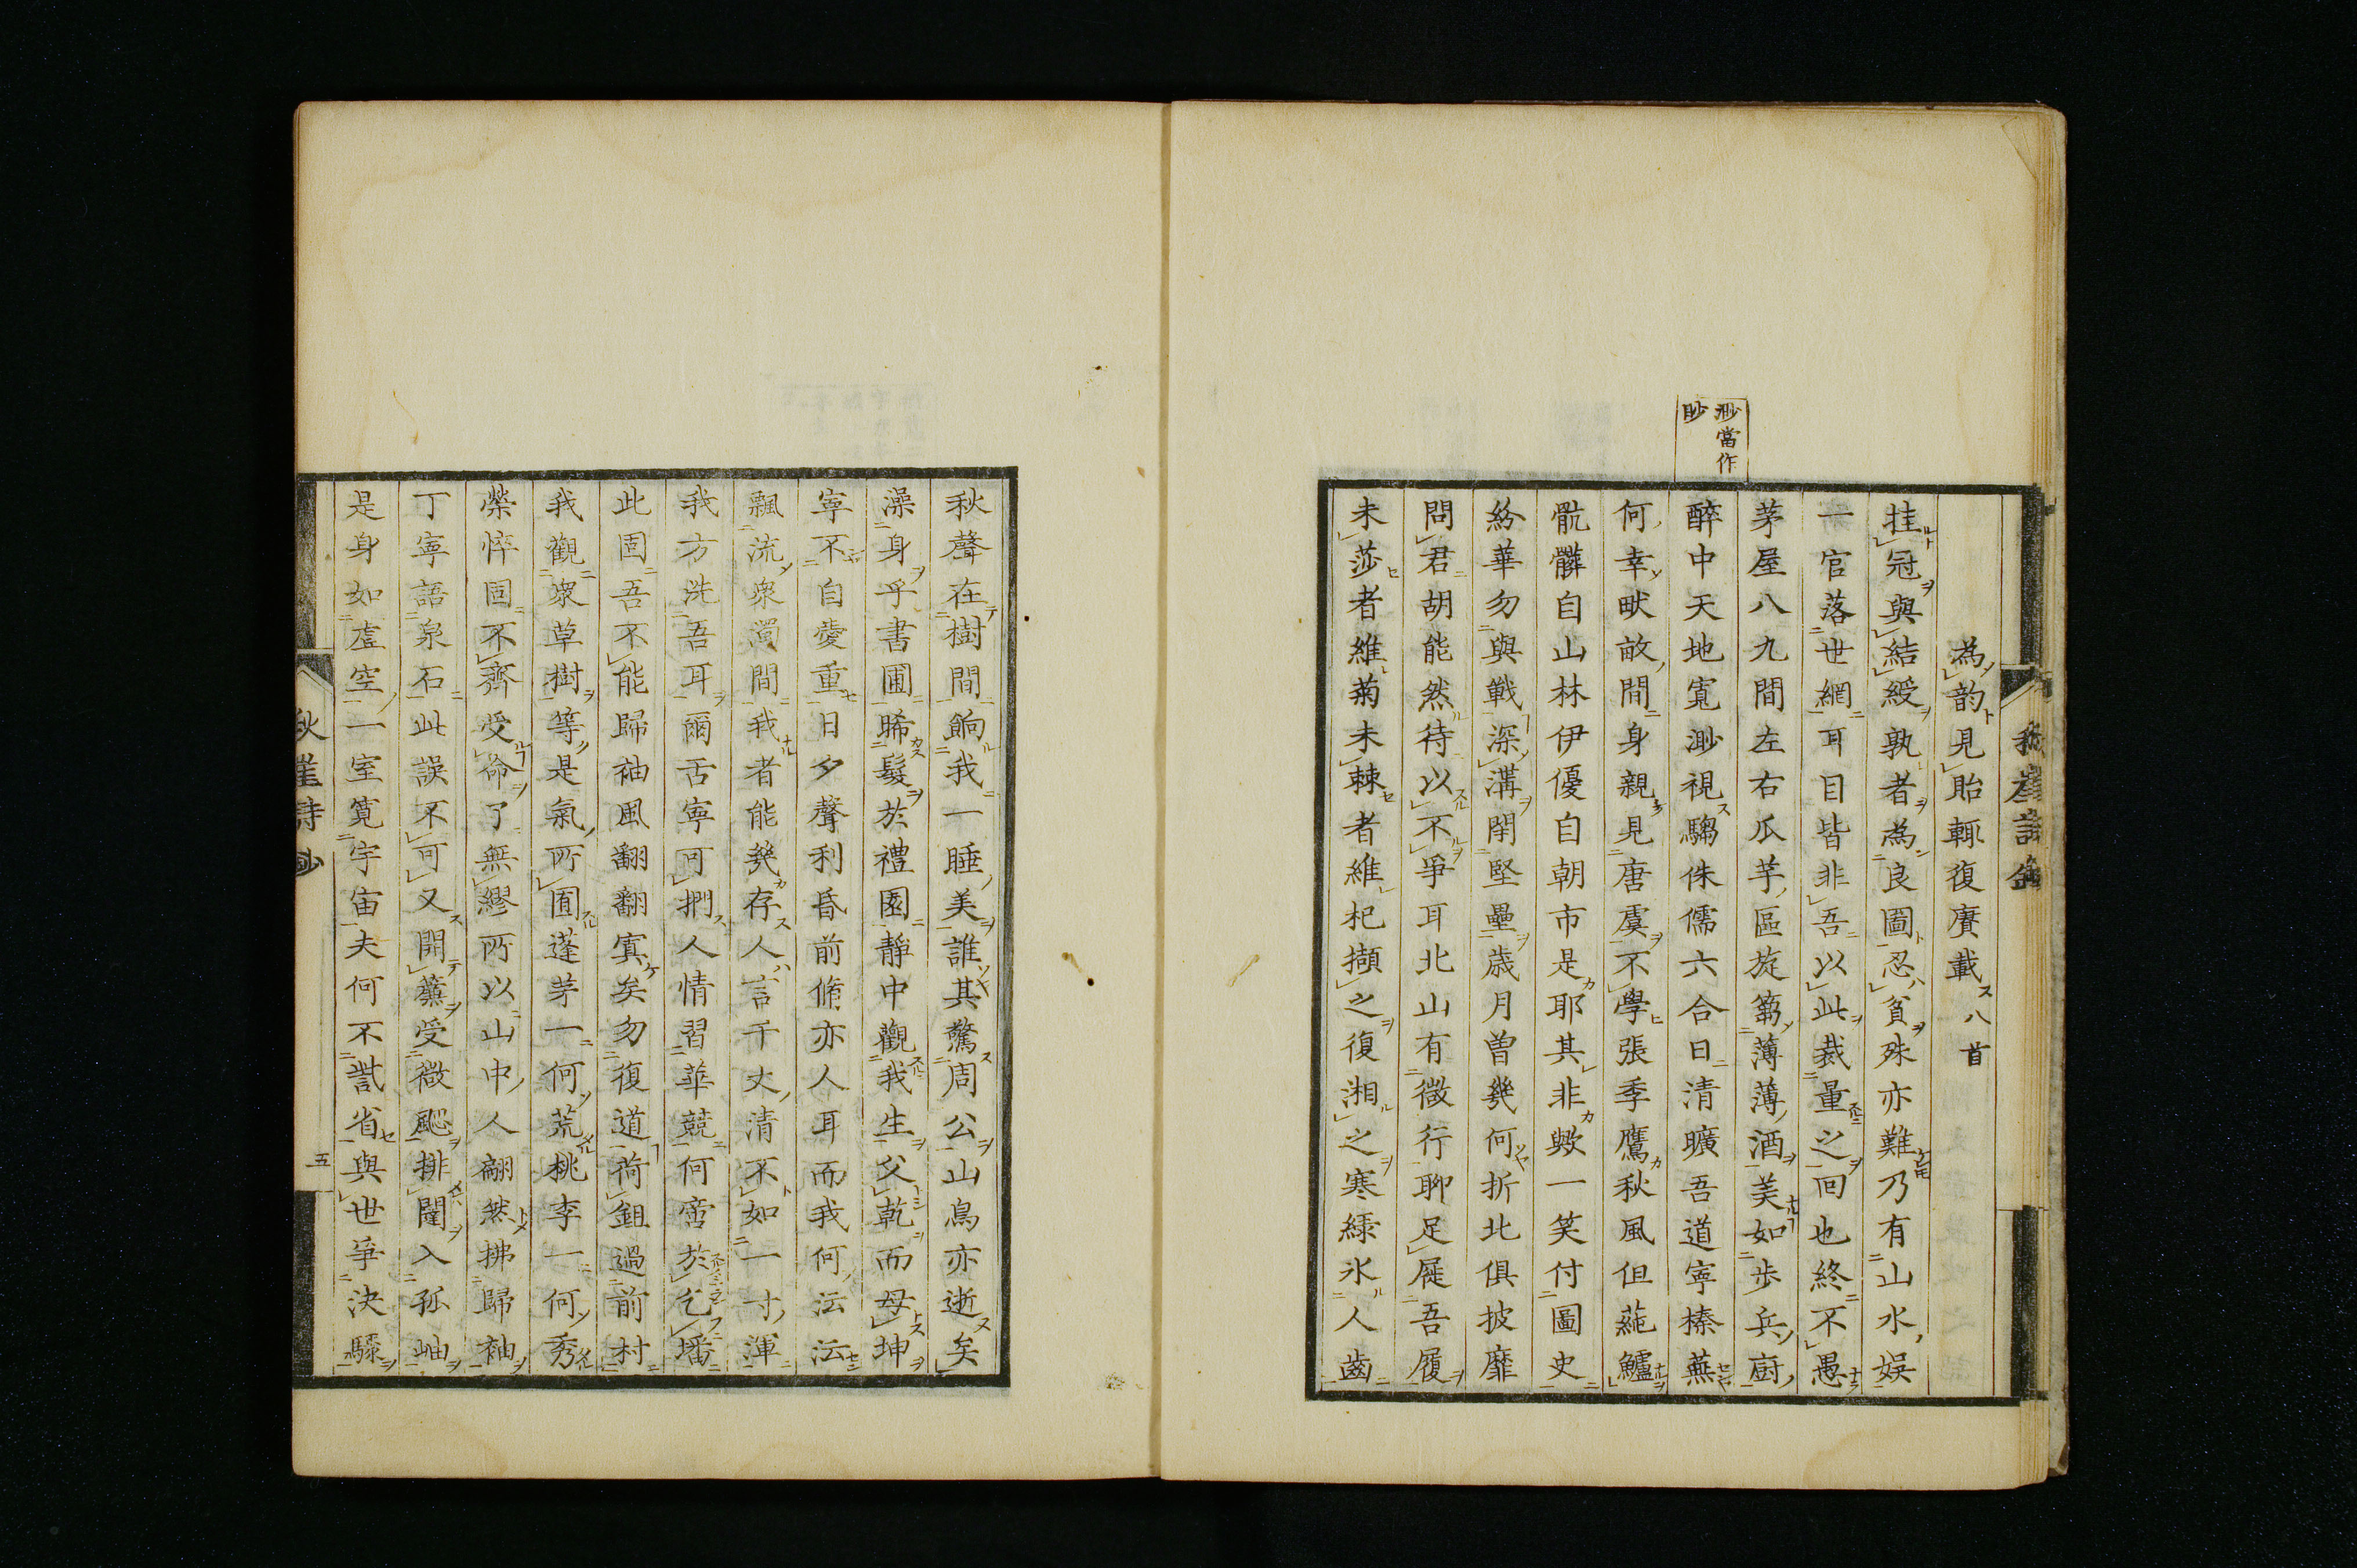 渺當作
眇
為韵見貽輒復賡載八首
挂冠與結綬孰者為良圖忍貧殊亦難乃有山水娯
一官落世網耳目皆非吾以此裁量之回也終不愚
茅屋八九間左右瓜芋區旋篘薄薄酒美如歩兵厨
醉中天地寛渺視騶侏儒六合日清曠吾道寧榛蕪
何幸畎畝間身親見唐虞不學張季鷹秋風但蓴鱸
骯髒自山林伊優自朝市是耶其非歟一笑付圖史
紛華勿與戰深溝閉堅壘歳月曽幾何折北俱披靡
問君胡能然待以不爭耳北山有微行聊足屣吾履
未莎者維菊未棘者維杞擷之復湘之寒緑氷人齒
秋聲在樹間餉我一睡美誰其驚周公山鳥亦逝矣
澡身乎書圃晞髮於禮園靜中觀我生父乾而母坤
寧不自愛重日夕聲利昏前脩亦人耳而我何沄沄
飄流衆濁間我者能幾存人言千丈清不如一寸渾
我方洗吾耳爾舌寧可捫人情習華競何啻於乞墦
此固吾不能歸袖風翻翻寘矣勿復道荷鉏過前村
我觀衆草樹等是氣所囿蓬茅一何荒桃李一何秀
榮悴固不齊受命了無繆所以山中人翩然拂歸袖
丁寧語泉石此誤不可又開蘪受微颸排闥入孤岫
是身如虚空一室寛宇宙夫何不訾省與世爭決驟
秋崖詩鈔
五